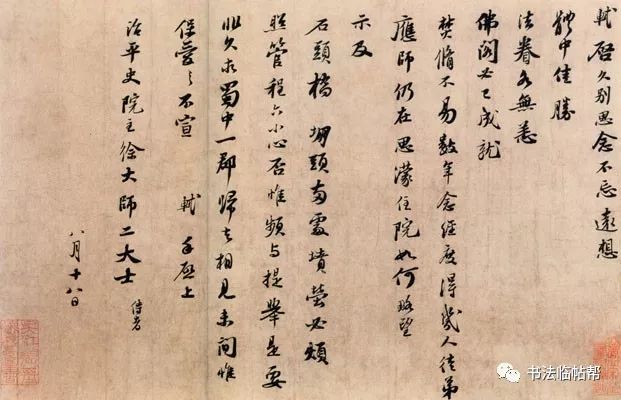 轼启久别思念不忘远想
體中佳勝
法眷各無恙
佛閣必已成就
焚脩不易數年念經度得幾人徒弟
應師仍在思濛住院如何略望
示及
石頭橋 堋頭兩處墳塋必煩
照管程六小心否惟頻与提舉是要
非久求蜀中一郡歸去相見未間惟
保愛之不宣 軾 手啓上
治平史院主徐大師二大士 侍者
八月十八日
书法临帖帮